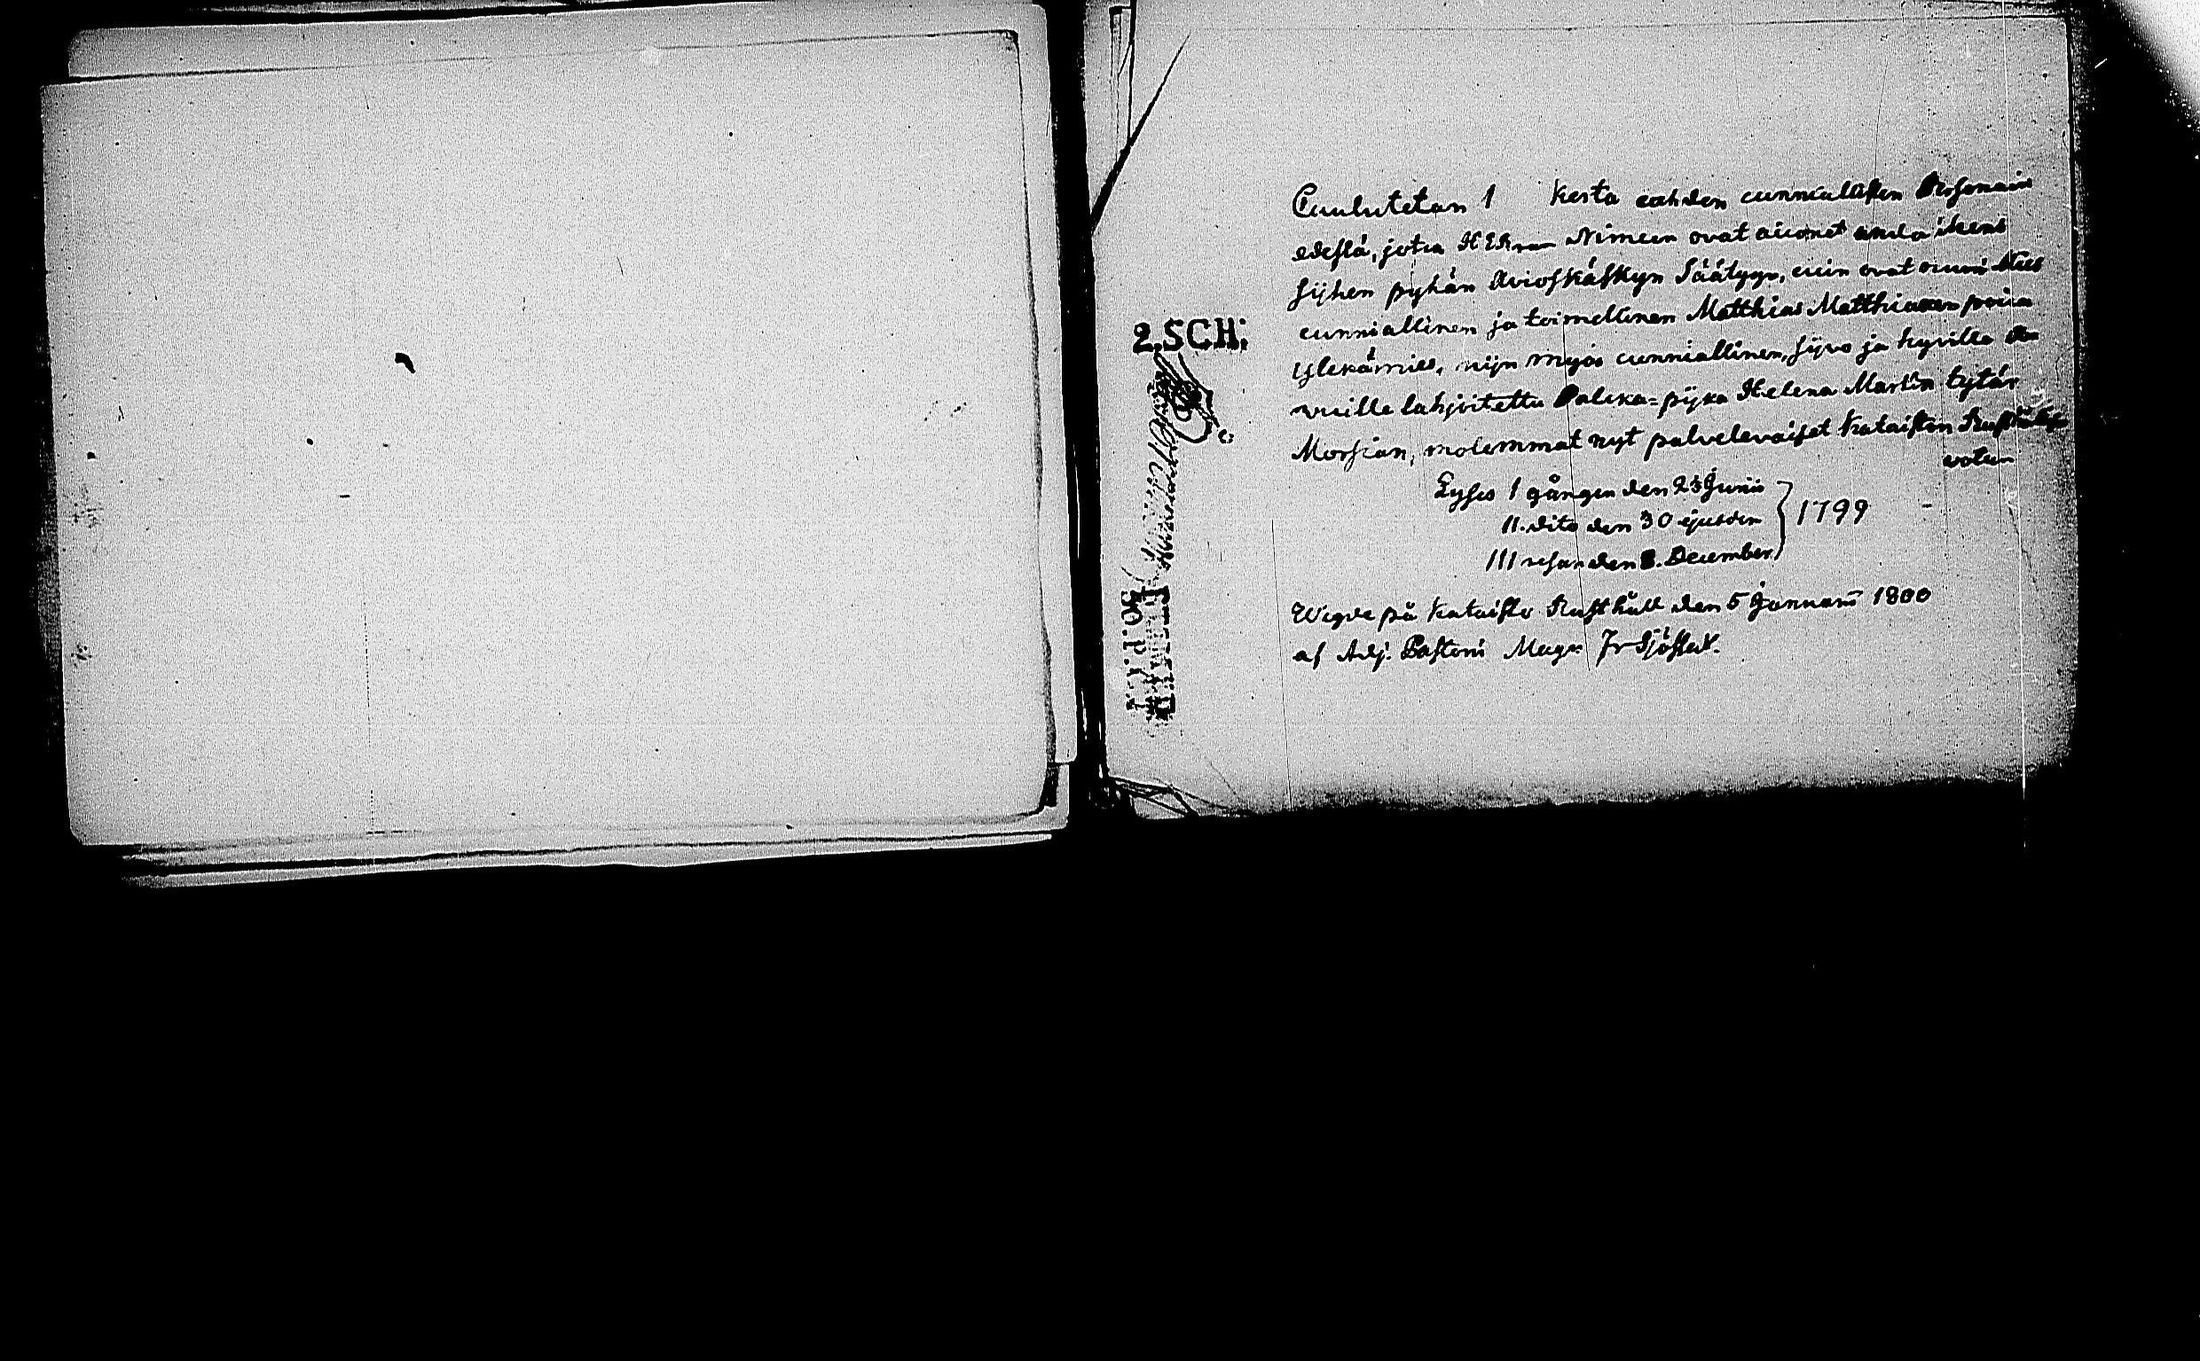 2.SCH:
Cuulutetan 1 kerta cahden cunniallisen Personain
edestä, jotca HERran Nimeen ovat aiconet anda itzens
sijhen pyhän Aviofkäfkyn Säätyyn, cuin ovat
cunniallinen ja toimellinen Matthias Matthiaxen poica
Yleskämies, nijn myös cunniallinen, sijvo ja hyvillä
vuilla lahjoitettu Palcka-pijca Helena Martin tytär
Morsian, molemmat nyt palvelevaiset Kataisten
Lyses 1 gången den 23 Junii
II. dito den 30 ejusdem
III resan den 8. December
1799
Wigde på Kataisto Rusthåll den 5 Januarii 1800
af Adj. Pastoris Magr